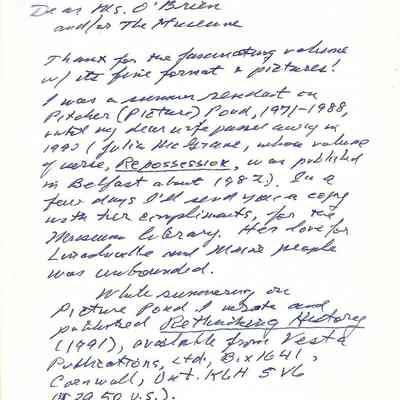 Dear Ms. O'Brien
and/or The Museum
Thanks for the fascinating volume
w/ its fine format & pictures!
I was a summer resident on
Pitcher (Picture) Pond, 1971-1988,
until my dear wife passed away in
1990 (Julia McGrane, whose volume
of verse, Repossession, was published
in Belfast about 1982). In a
few days I'll send you a copy
with her compliments, for the
Museum library. Her love for
Lincolnville and Maine people
was unbounded.
While summering on
Picture Pond I wrote and
published Rethinking History
(1991), available from Vesta
Publications, Ltd., Box 1641,
Cornwall, Ont. K6H 5V6
($29.50 U.S.).